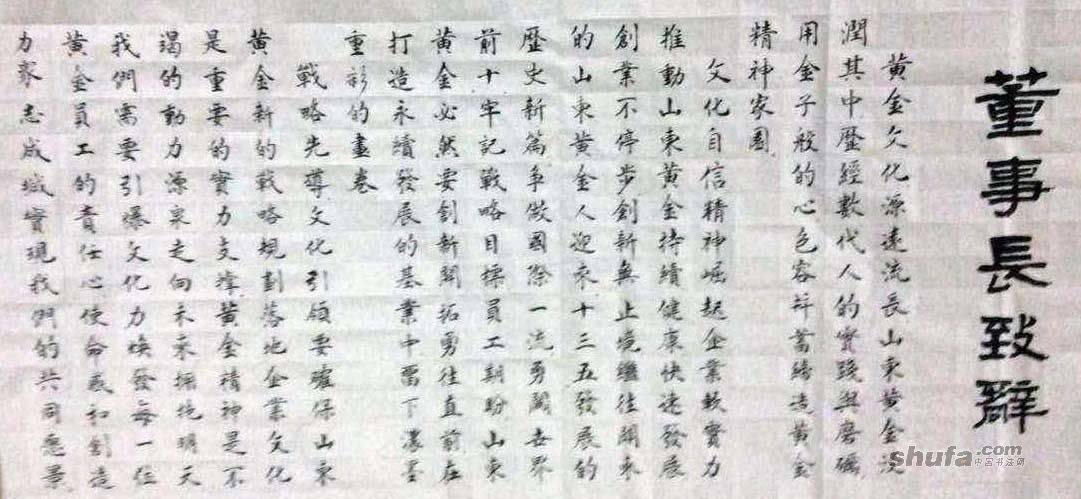 董事長致辭
黃金文化源遠流長山東黃金浸
潤其中歷經數代人的實踐與磨礪
用金子般的心色容并蓄鑄造黃金
精神家園
文化自信精神崛起企業軟實力
推動山東黃金持續健康快速發展
創業不停步創新無止境繼往開來
的山東黃金人迎來十三五發展的
歷史新篇爭做國際一流勇闖世界
前十牢記戰略目標員工期盼山東
黃金必然要創新開拓勇往直前在
打造永續發展的基業中留下濃墨
重彩的畫卷
戰略先導文化引領要確保山東
黃金新的戰略規劃落地企業文化
是重要的實力支撐黃金精神是不
竭的動力源泉走向未來擁抱明天
我們需要引爆文化力煥發每一位
黃金員工的責任心使命感和創造
力眾志成城實現我們的共同愿景
shufa.com
中国书法网